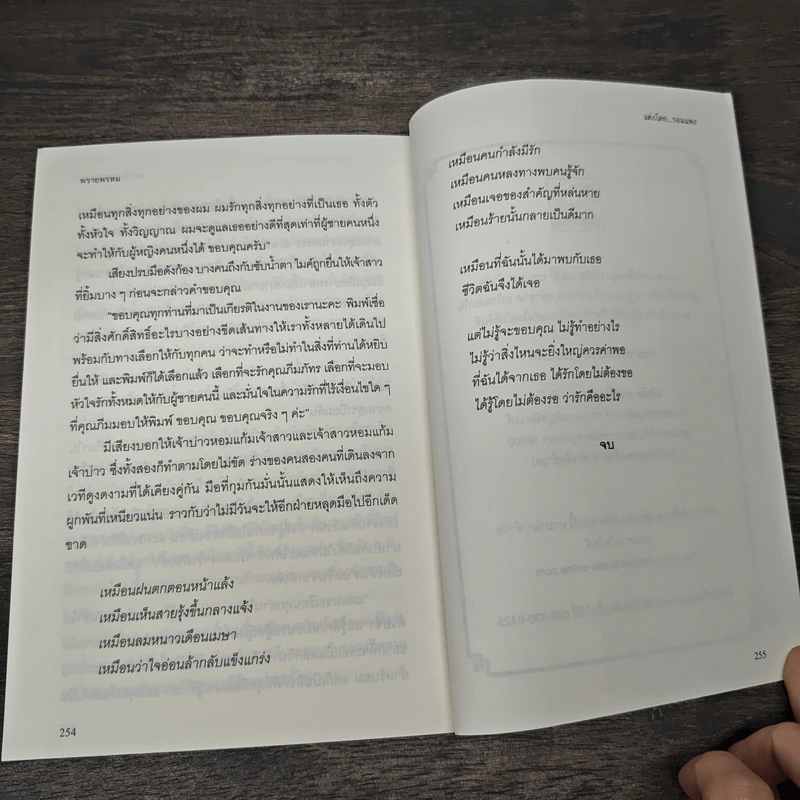 พรายพรหม
เหมือนทุกสิ่งทุกอย่างของผม ผมรักทุกสิ่งทุกอย่างที่เป็นเธอ ทั้งตัว
ทั้งหัวใจ ทั้งวิญญาณ ผมจะดูแลเธออย่างดีที่สุดเท่าที่ผู้ชายคนหนึ่ง
จะทำให้กับผู้หญิงคนหนึ่งได้ ขอบคุณครับ"
เสียงปรบมือดังก้อง บางคนถึงกับซับน้ำตา ไมค์ถูกยื่นให้เจ้าสาว
ที่ยิ้มบาง ๆ ก่อนจะกล่าวคำขอบคุณ
"ขอบคุณทุกท่านที่มาเป็นเกียรติในงานของเรานะคะ พิมพ์เชื่อ
ว่ามีสิ่งศักดิ์สิทธิ์อะไรบางอย่างขีดเส้นทางให้เราทั้งหลายได้เดินไป
พร้อมกับทางเลือกให้กับทุกคน ว่าจะทำหรือไม่ทำในสิ่งที่ท่านได้หยิบ
ยื่นให้ และพิมพ์ก็ได้เลือกแล้ว เลือกที่จะรักคุณภีมภัทร เลือกที่จะมอบ
หัวใจรักทั้งหมดให้กับผู้ชายคนนี้ และมั่นใจในความรักที่ไร้เงื่อนไขใด ๆ
ที่คุณภีมมอบให้พิมพ์ ขอบคุณ ขอบคุณจริง ๆ ค่ะ"
มีเสียงบอกให้เจ้าบ่าวหอมแก้มเจ้าสาวและเจ้าสาวหอมแก้ม
เจ้าบ่าว ซึ่งทั้งสองก็ทำตามโดยไม่ขัด ร่างของคนสองคนที่เดินลงจาก
เวทีดูงดงามที่ได้เคียงคู่กัน มือที่กุมกันมั่นนั้นแสดงให้เห็นถึงความ
ผูกพันที่เหนียวแน่น ราวกับว่าไม่มีวันจะให้อีกฝ่ายหลุดมือไปอีกเด็ด
ขาด
เหมือนฝนตกตอนหน้าแล้ง
เหมือนเห็นสายรุ้งขึ้นกลางแจ้ง
เหมือนลมหนาวเดือนเมษา
เหมือนว่าใจอ่อนล้ากลับแข็งแกร่ง
254
แต่งโดย...รอมแพง
เหมือนคนกำลังมีรัก
เหมือนคนหลงทางพบคนรู้จัก
เหมือนเจอของสำคัญที่หล่นหาย
เหมือนร้ายนั้นกลายเป็นดีมาก
เหมือนที่ฉันนั้นได้มาพบกับเธอ
ชีวิตฉันจึงได้เจอ
แต่ไม่รู้จะขอบคุณ ไม่รู้ทำอย่างไร
ไม่รู้ว่าสิ่งไหนจะยิ่งใหญ่ควรค่าพอ
ที่ฉันได้จากเธอ ได้รักโดยไม่ต้องขอ
ได้รู้โดยไม่ต้องรอ ว่ารักคืออะไร
จบ
255